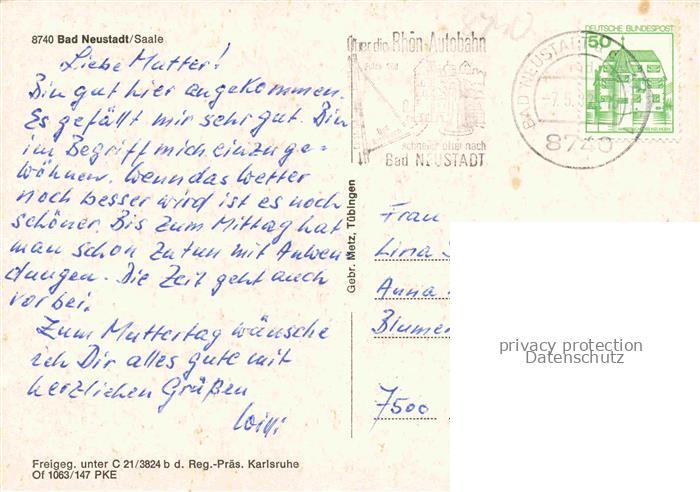 8740 Bad Neustadt/Saale
Liebe Mutter!
Bin gut hier angekommen.
Es gefällt mir sehr gut. Bin
im Begriff mich einzuge-
wöhnen. Wenn das Wetter
noch besser wird ist es noch
schöner. Bis zum Mittag hat
man schon zu tun mit Anwen
dungen. Die Zeit geht auch
vorbei.
Zum Muttertag wünsche
ich Dir alles gute mit
herzlichen Grüßen
Willi
Freigeg. unter C 21/3824 b d. Reg.-Präs. Karlsruhe
Of 1063/147 PKE
Gebr. Metz, Tübingen
Über die Rhön-Autobahn
schneller
nach
Bad NEUSTADT
BAD NEUSTADT
-7.5.
8740
DEUTSCHE BUNDESPOST
50
Frau
Lina
Anna
Blumen
7500
privacy protection
Datenschutz